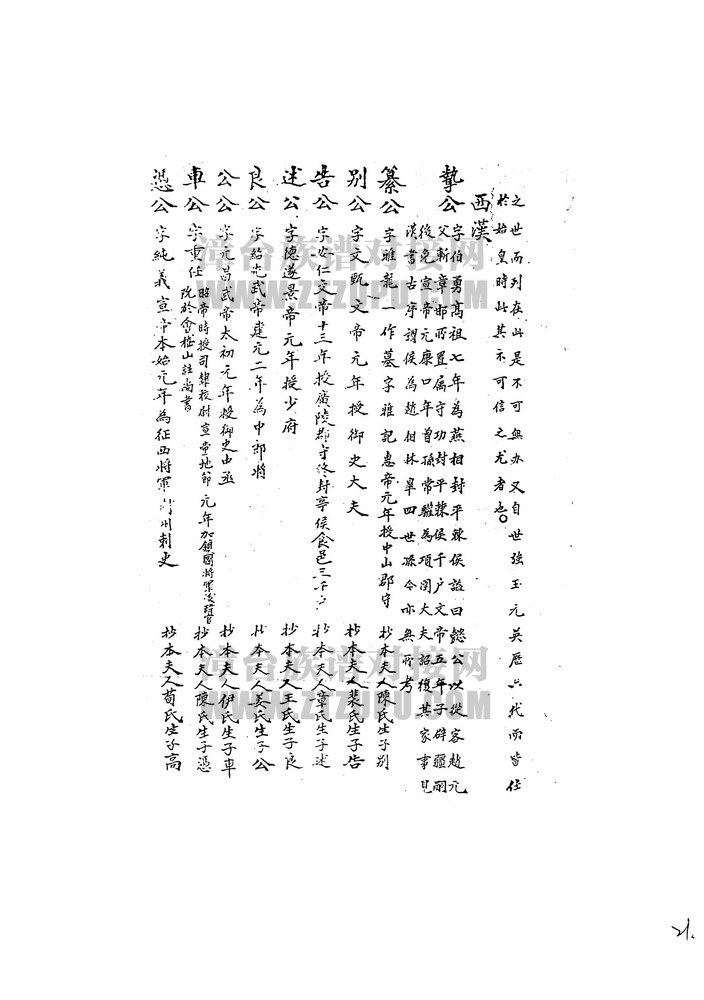 之世而列在此是不可無办又自世強玉元英歷六代而皆任
於始皇時此其不可信之尤者也。
西漢
摯公 字伯勇高祖七年為燕相封平棘侯諡曰懿公以從客趙元
父斬章邯所置属守功封平棘侯千户文帝五年子辟疆嗣
後免宣帝元康口年曾孫常驩為項圉大夫詔復其家事見
漢書古序謂侯為趙相林臯四世孫今亦無所考
纂公 字雅龍一作墓字雅記惠帝元年授中山郡守 抄本夫人陳氏生子别
别公 字文甄文帝元年授御史大夫 抄本夫人裴氏生子告
告公 字安仁文帝十三年授廣陵郡守终封亭侯食邑三千户 抄本夫人章氏生子述
述公 字德遂景帝元年授少府 抄本夫人王氏生子良
良公 字紹先武帝建元二年為中郎将 抄本夫人姜氏生子公
公公 字元昌武帝太初元年授御史中丞 抄本夫人伊氏生子車
車公 字重任 昭帝時授司隸校尉宣帝地節元年加鎮國将軍
既於會嵇山註尚書 抄本夫人陳氏生子憑
憑公 字純義宣帝本始元年為征西将軍荆州刺史 抄本夫人荀氏生子高
漳台族谱对接网
WWW.ZTZUPU.COM
漳台族谱对接网
WWW.ZTZUPU.COM
21.